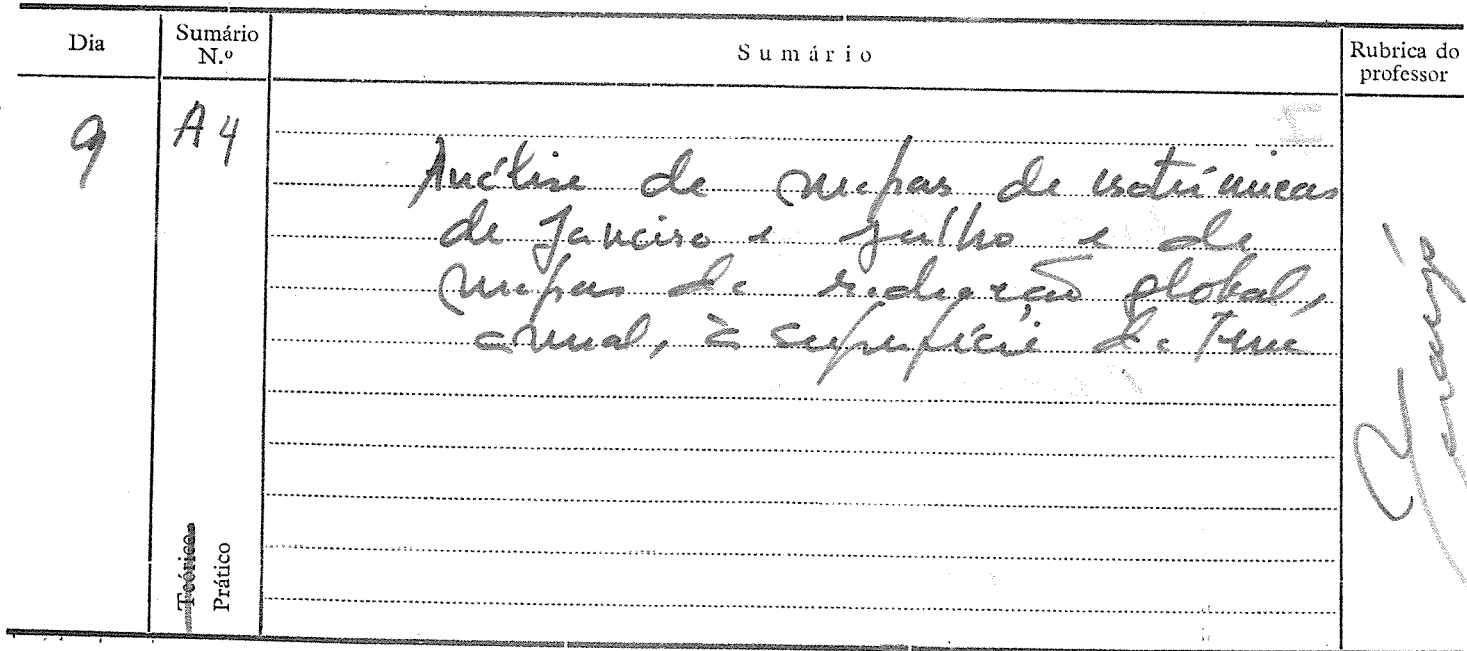 Dia
Sumário N.º
Sumário
Rubrica do professor
9
A 4
Análise de mapas de isotérmicas
de Janeiro e Julho e de
mapas de radiação global,
anual, à superfície da Terra
Teórico
Prático